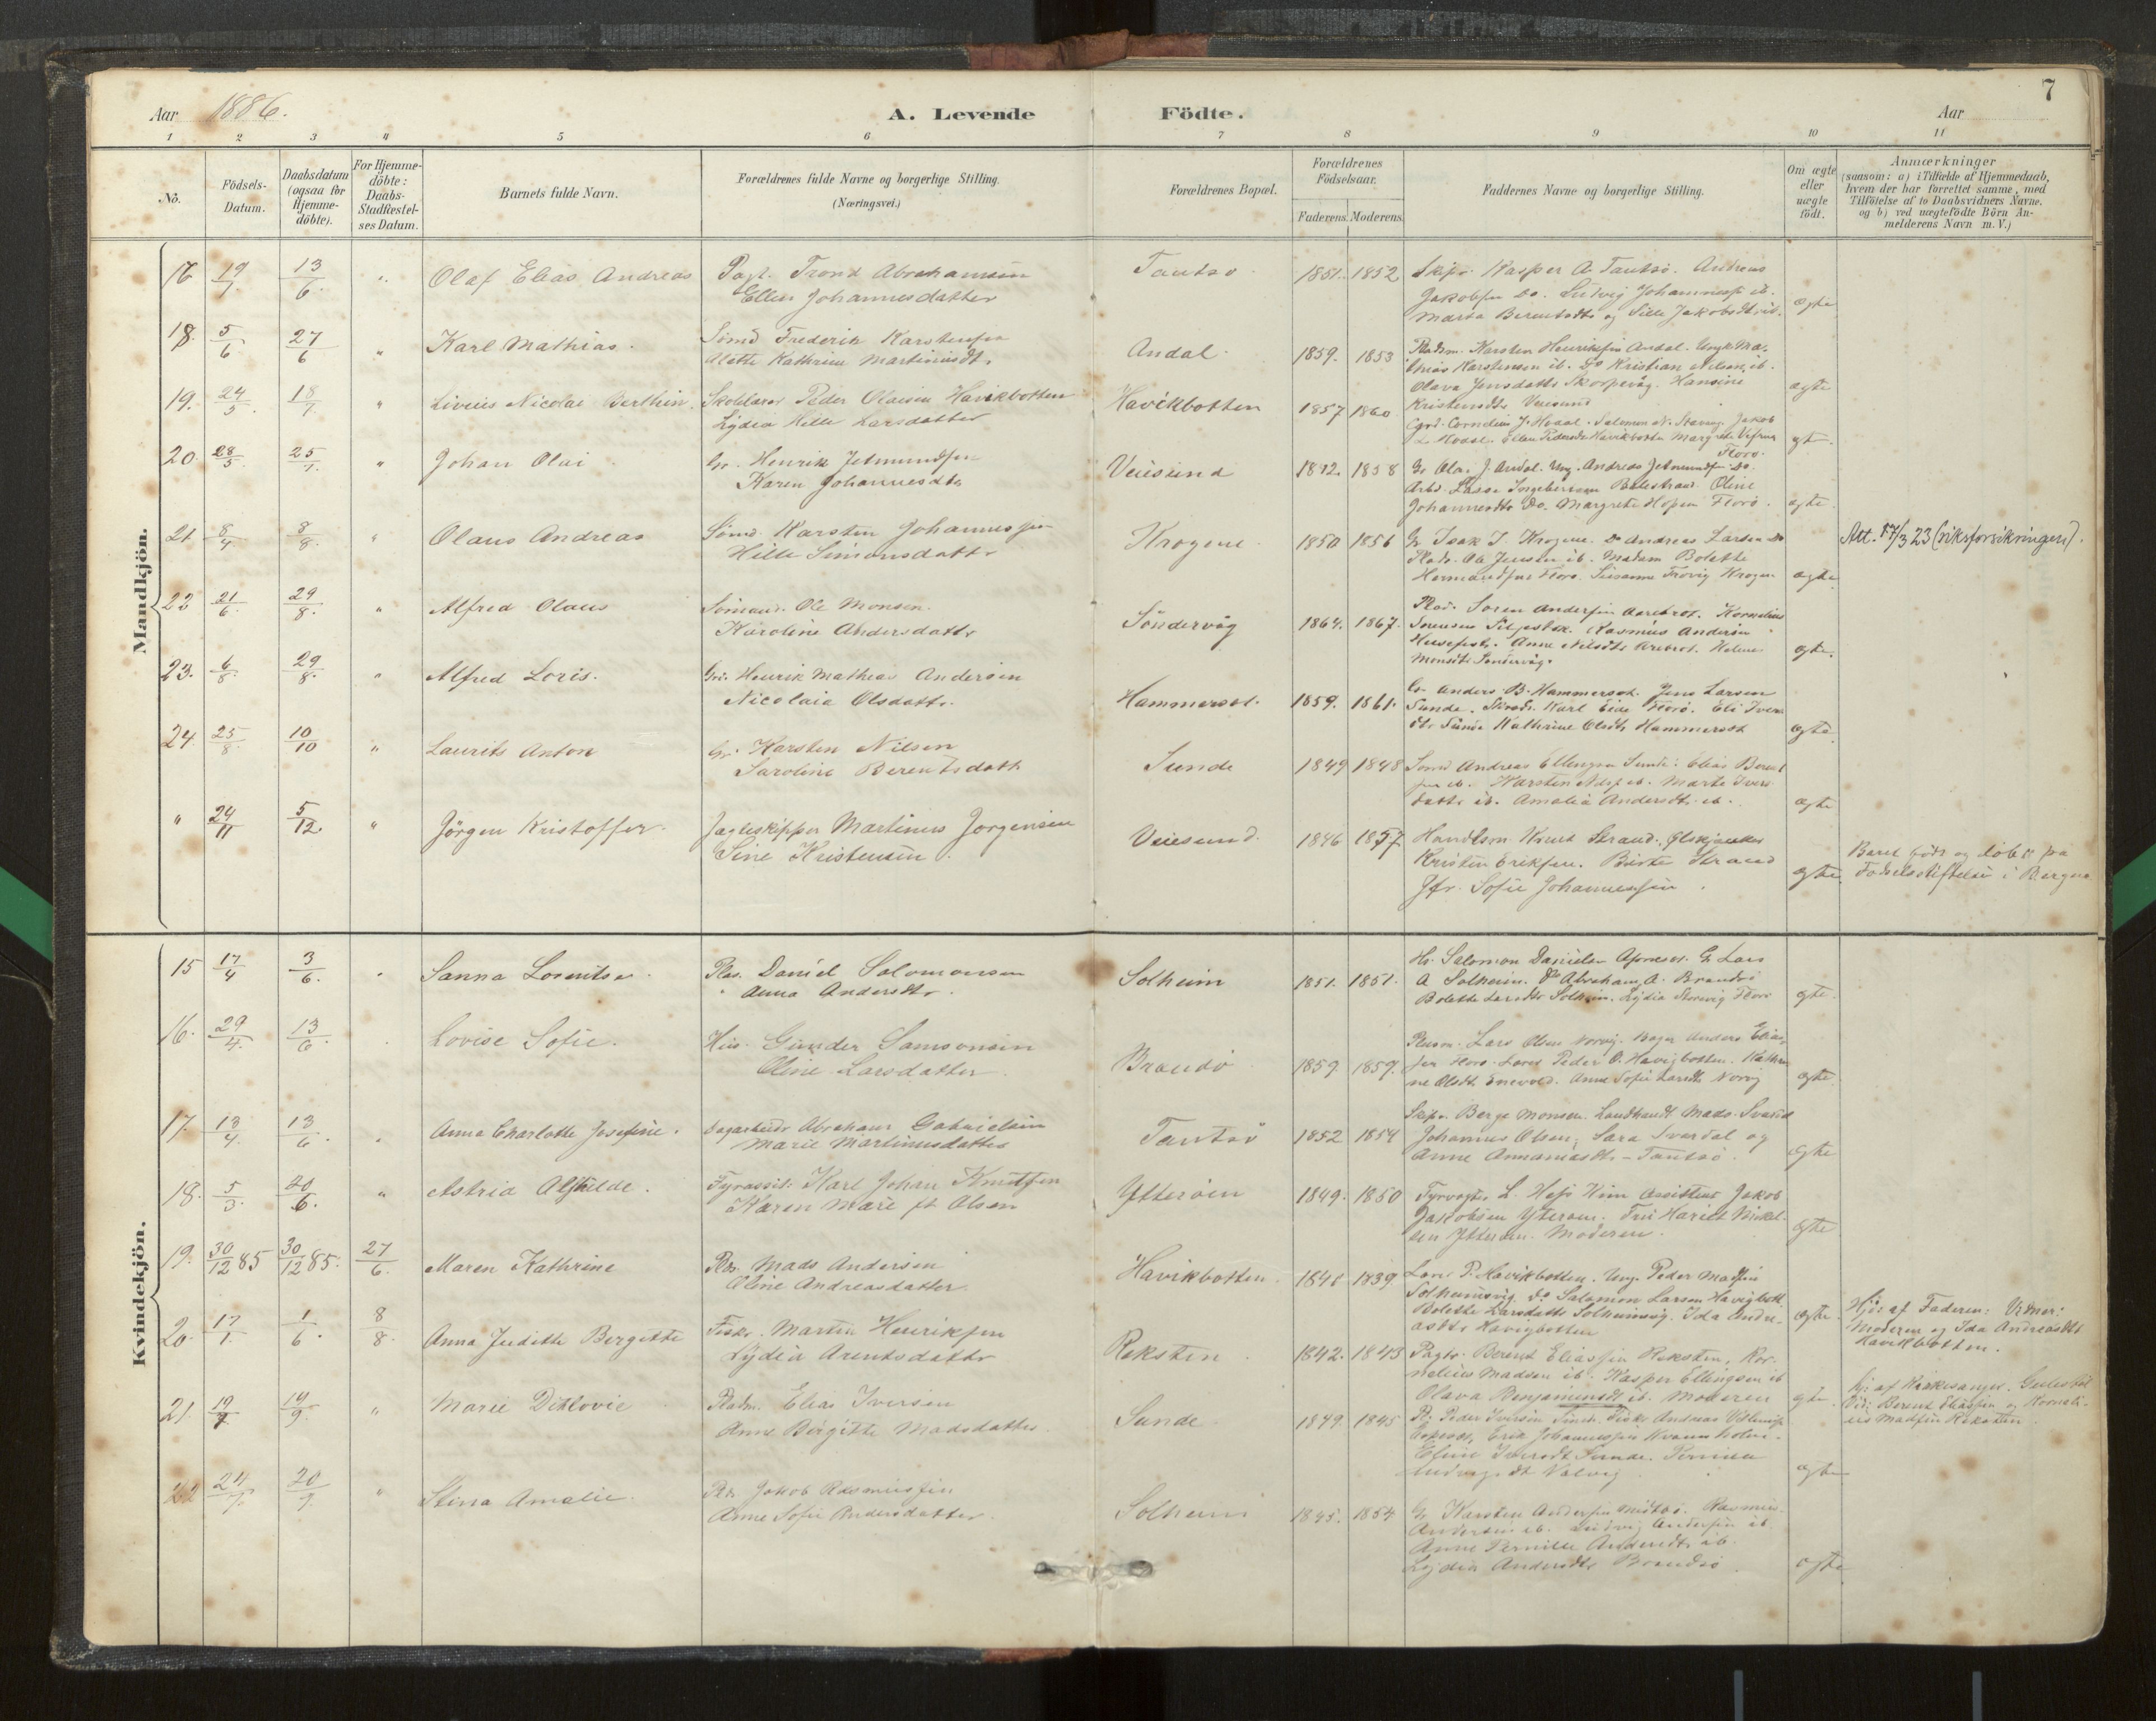 7
Aar 1886.
A. Levende Födte.
Aar
1 2 3 4 5 6 7 8 9 10 11
No.
Födsels-
Datum.
Daabsdatum
(ogsaa for
Hjemme-
döbte).
For Hjemme-
döbte:
Daabs-
Stadfæstel-
ses Datum.
Barnets fulde Navn.
Forældrenes fulde Navne og borgerlige Stilling.
(Næringsvei.)
Forældrenes Bopæl.
Forældrenes
Födselsaar.
Faderens. Moderens.
Faddernes Navne og borgerlige Stilling.
Om ægte
eller
uægte
födt.
Anmærkninger
(saasom: a) i Tilfælde af Hjemmedaab,
hvem der har forrettet samme, med
Tilföielse af to Daabsvidners Navne.
og b) ved uægtefödte Börn An-
melderens Navn m. V.)
Mandkjön.
13/6 " Olaf Elias Andreas
Trond Abrahamsen
Ellen Johannesdatter
Tautsø 1851. 1852
Skipr Kasper A. Tautsø. Andreas
Jakobsen Do. Ludvig Johannesen ib.
Marta Berentsdtr og Sille Jakobsdtr ib.
ægte
18. 5/6 27/6 " Karl Mathias.
Sømd Frederik Karstensen
Alette Kathrine Martinusdt.
Andal. 1859. 1853
Pladsm. Karsten Henriksen Andal. Ungk Ma-
thias Karstensen ib. Do Kristian Nilsen, ib.
Olava Jensdatter Skorpevåg. Hansine
Kristensdtr Veiesund
ægte
19. 24/5 18/7 " Livius Nicolai Berthin.
Skolelærer Peder Olaisen Havikbotten
Lydia Hille Larsdatter
Havikbotten 1857 1860
Cornelius J. Hodal. Salomon N. Stavang. Jakob
Hodal. Ellen Pedersdtr Havikbotten Margrete
Florø.
ægte.
20. 28/5 25/7 " Johan Olai
Gr. Henrik Jetmundsen
Karen Johannesdtr
Veiesund 1842. 1858
Gr Ola J. Andal. Ung. Andreas Jetmundsen Do.
Arbd. Lasse Ingebertsen Balestrand. Oline
Johannesdtr Do. Margrete Hopen Florø.
ægte.
21. 8/4 8/8. " Olaus Andreas
Sømd. Karsten Johannessen
Hille Simonsdattr
Krogene 1850 1856
Gr. Isak I. Krogene. Do Andreas Larsen Do
Plads. Ole Jensen ib. Madam Bolette
Hermandsen Florø. Susanne Trovig Krogen
ægte
Att. 17/3 23 (riksforsikringen).
22 21/6. 29/8. " Alfred Olaus
Sømand. Ole Monsen.
Karoline Andersdattr
Söndervåg 1864. 1867.
Plad. Søren Andersen Aarebrot. Kornelius
Sørensen. Rasmus Andersen
Husefest. Anne Nilsdtr Arebrot. Helene
Monsdtr Søndervåg.
ægte.
23. 6/8 29/8. " Alfred Loris.
Gr. Henrik Mathias Andersen
Nicolaia Olsdattr.
Hammersæt. 1859. 1861.
Gr. Anders B. Hammersæt. Jens Larsen
Sunde. Karl Eide Florø. Eli Ivers
dtr Sunde Kathrine Olsdtr Hammersæt
ægte.
24 25/8. 10/10 " Laurits Anton
Gr. Karsten Nilsen
Saroline Berentsdatt
Sunde 1849 1848
Sømd Andreas Ellingsen Sunde. Elias Berent
sen ib. Karsten Ndsf ib. Marte Ivers
dattr ib. Amalia Andersdtr ib.
ægte
" 24/11 5/12. " Jörgen Kristoffer.
Jagteskipper Martinus Jorgensen
Sine Kristensen.
Veiesund. 1846 1857
Handlsm Knut Strand. Ølskjænker
Kristen Eriksen. Birte Strand
Jfr. Sofie Johannessen.
ægte.
Barnet født og døbt på
Fødselsstiftelsen i Bergen
Kvindekjön.
15 17/4 3/6. " Sanna Lorentse.
Plas. Daniel Salomonsen
Anna Andersdtr.
Solheim 1851. 1851.
Salomon Danielsen. Gr Lars
A Solheim. Do Abraham A. Brandsø
Bolette Larsdtr Solheim. Lydia Storevig Florø
ægte.
16. 29/4. 13/6. Lovise Sofie.
Hus. Gunder Samsonsen
Oline Larsdatter.
Brandsø 1859 1859.
Lars Olsen Norvig. Bager Anders Elias-
sen Florø. Lærer Peder O. Havigbotten. Kathri
ne Olsdt. Enevold. Anne Sofie Larsdtr Norvig
ægte.
17. 13/4 13/6. " Anna Charlotte Josefine.
Dagarbeidr Abraham Gabrielsen
Marie Martinusdatter
Tautsø 1852 1854
Skipr. Berge Monsen. Landhandl Mads Svardal
Johannes Olsen, Sara Svardal og
Anne Annaniasdtr - Tautsø.
ægte
18. 5/3. 20/6. " Astrid Alfhilde.
Fyrassist. Karl Johan Knutsen
Karen Marie ft Olsen
Ytterøen 1849. 1850
Fyrvogter L. Assistent Jakob
Jakobsen Yterøen. Fru Hariet Mikel-
sen Ytterøen. Moderen.
ægte
19. 30/12 85 30/12 85. 27/6. Maren Kathrine
Plds. Mads Andersen
Oline Andreasdatter.
Havikbotten. 1839.
Lærer P. Havikbotten. Ung. Peder Madsen
Solheimsvig. Do Salomon Larsen Havigbott
Bolette Larsdattr Solheimsvig. Ida Andre-
asdtr Havigbotten
ægte.
Hjd: af Faderen: Vidner:
Moderen og Ida Andreasdtr
Havikbotten.
20. 17/1. 1/6. 8/8. Anna Judithe Bergitte
Fiskr. Martin Henriksen
Lydia Arentsdattr
Reksten. 1842. 1843
Pagtr. Berent Eliassen Reksten, Kor-
nelius Madsen ib. Kasper Ellingsen ib
Olava Benjaminsdt ib. Moderen
ægte.
Hj: af Kirkesanger
Vid: Berent Eliassen og Korneli-
us Madsen Reksten.
21. 19/7 19/9. " Marie Ditlovie
Pladm. Elias Iversen
Anne Birgitte Madsdatter.
Sunde. 1849. 1845
Pl. Peder Iversen Sunde. Fiskr Andreas
Erik Johannessen
Eline Iversdt Sunde. Pernille
ægte
22 24/7. 20/9. " Stina Amalie.
Plds. Jakob Rasmussen
Anne Sofie Andersdatter.
Solheim 1845. 1854
Gr Karsten Andersen Midtbø. Rasmus
Andersen ib. Ludvig Andersen ib.
Anne Pernille Andersdtr ib.
Lydia Andersdtr Brandsø.
ægte